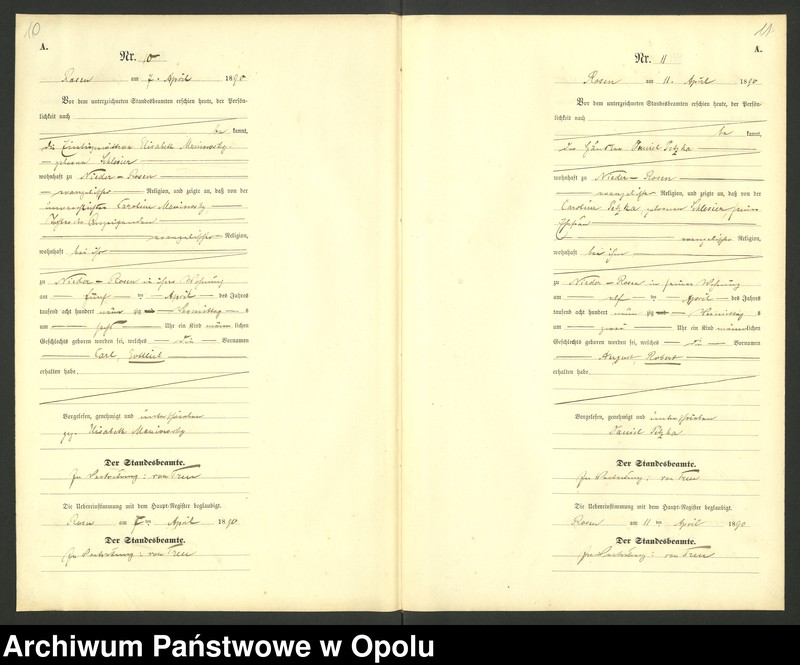 10
A.
Nr. 10
Rosen am 7. April 1890
Vor dem unterzeichneten Standesbeamten erschien heute, der Persön-
lichkeit nach
be kannt,
die Elisabeth
geborene Schlesier
wohnhaft zu Nieder-Rosen
evangelischer Religion, und zeigte an, daß von der
unverehelichten Caroline
Tochter der Anzeigenden
evangelischer Religion,
wohnhaft bei ihr
zu Nieder-Rosen in ihrer Wohnung
am fünf ten April des Jahres
tausend acht hundert neunzig Vormittag s
um sechs Uhr ein Kind männ lichen
Geschlechts geboren worden sei, welches die Vornamen
Carl, Gottlieb
erhalten habe.
Vorgelesen, genehmigt und unterschrieben
gez. Elisabeth
Der Standesbeamte.
In Vertretung: von
Die Uebereinstimmung mit dem Haupt-Register beglaubigt.
Rosen am 7 ten April 1890
Der Standesbeamte.
In Vertretung: von
11
A.
Nr. 11
Rosen am 11. April 1890
Vor dem unterzeichneten Standesbeamten erschien heute, der Persön-
lichkeit nach
be kannt,
der Häusler Daniel Petzka
wohnhaft zu Nieder-Rosen
evangelischer Religion, und zeigte an, daß von der
Caroline Petzka, geborenen Schlesier, seiner
Ehefrau
evangelischer Religion,
wohnhaft bei ihm
zu Nieder-Rosen in seiner Wohnung
am elf ten April des Jahres
tausend acht hundert neunzig Vormittag s
um zwei Uhr ein Kind männlichen
Geschlechts geboren worden sei, welches die Vornamen
August, Robert
erhalten habe.
Vorgelesen, genehmigt und unterschrieben
Daniel Petzka
Der Standesbeamte.
In Vertretung: von
Die Uebereinstimmung mit dem Haupt-Register beglaubigt.
Rosen am 11 ten April 1890
Der Standesbeamte.
In Vertretung: von
Archiwum Państwowe w Opolu